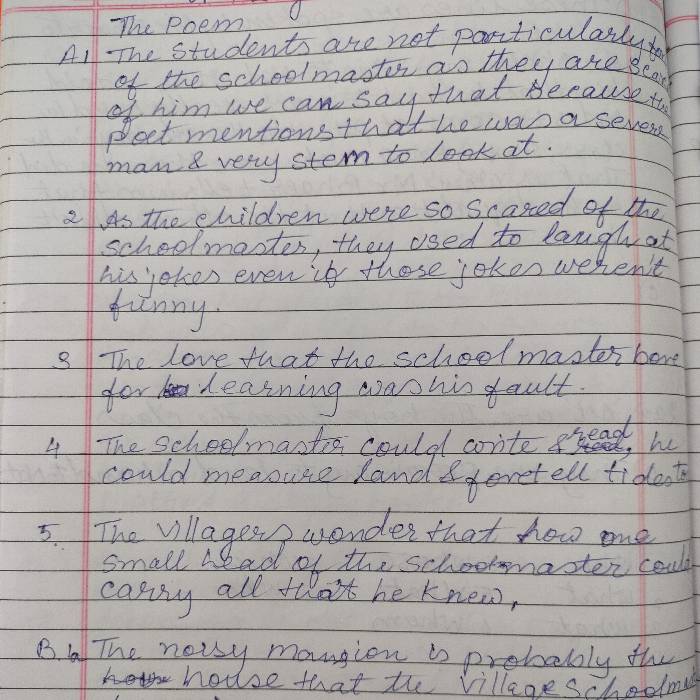 The Poem
A1 The Students are not particularly
of the schoolmaster as they are
of him we can say that Because the
poet mentions that he was a severe
man & very stern to look at.
2 As the children were so scared of the
schoolmaster, they used to laugh at
his jokes even if those jokes weren't
funny.
3 The love that the school master bore
for learning was his fault.
4 The schoolmaster could write & read, he
could measure land & foretell tides
5. The villagers wonder that how one
small head of the schoolmaster could
carry all that he knew,
B. The noisy mansion is probably the
house that the village